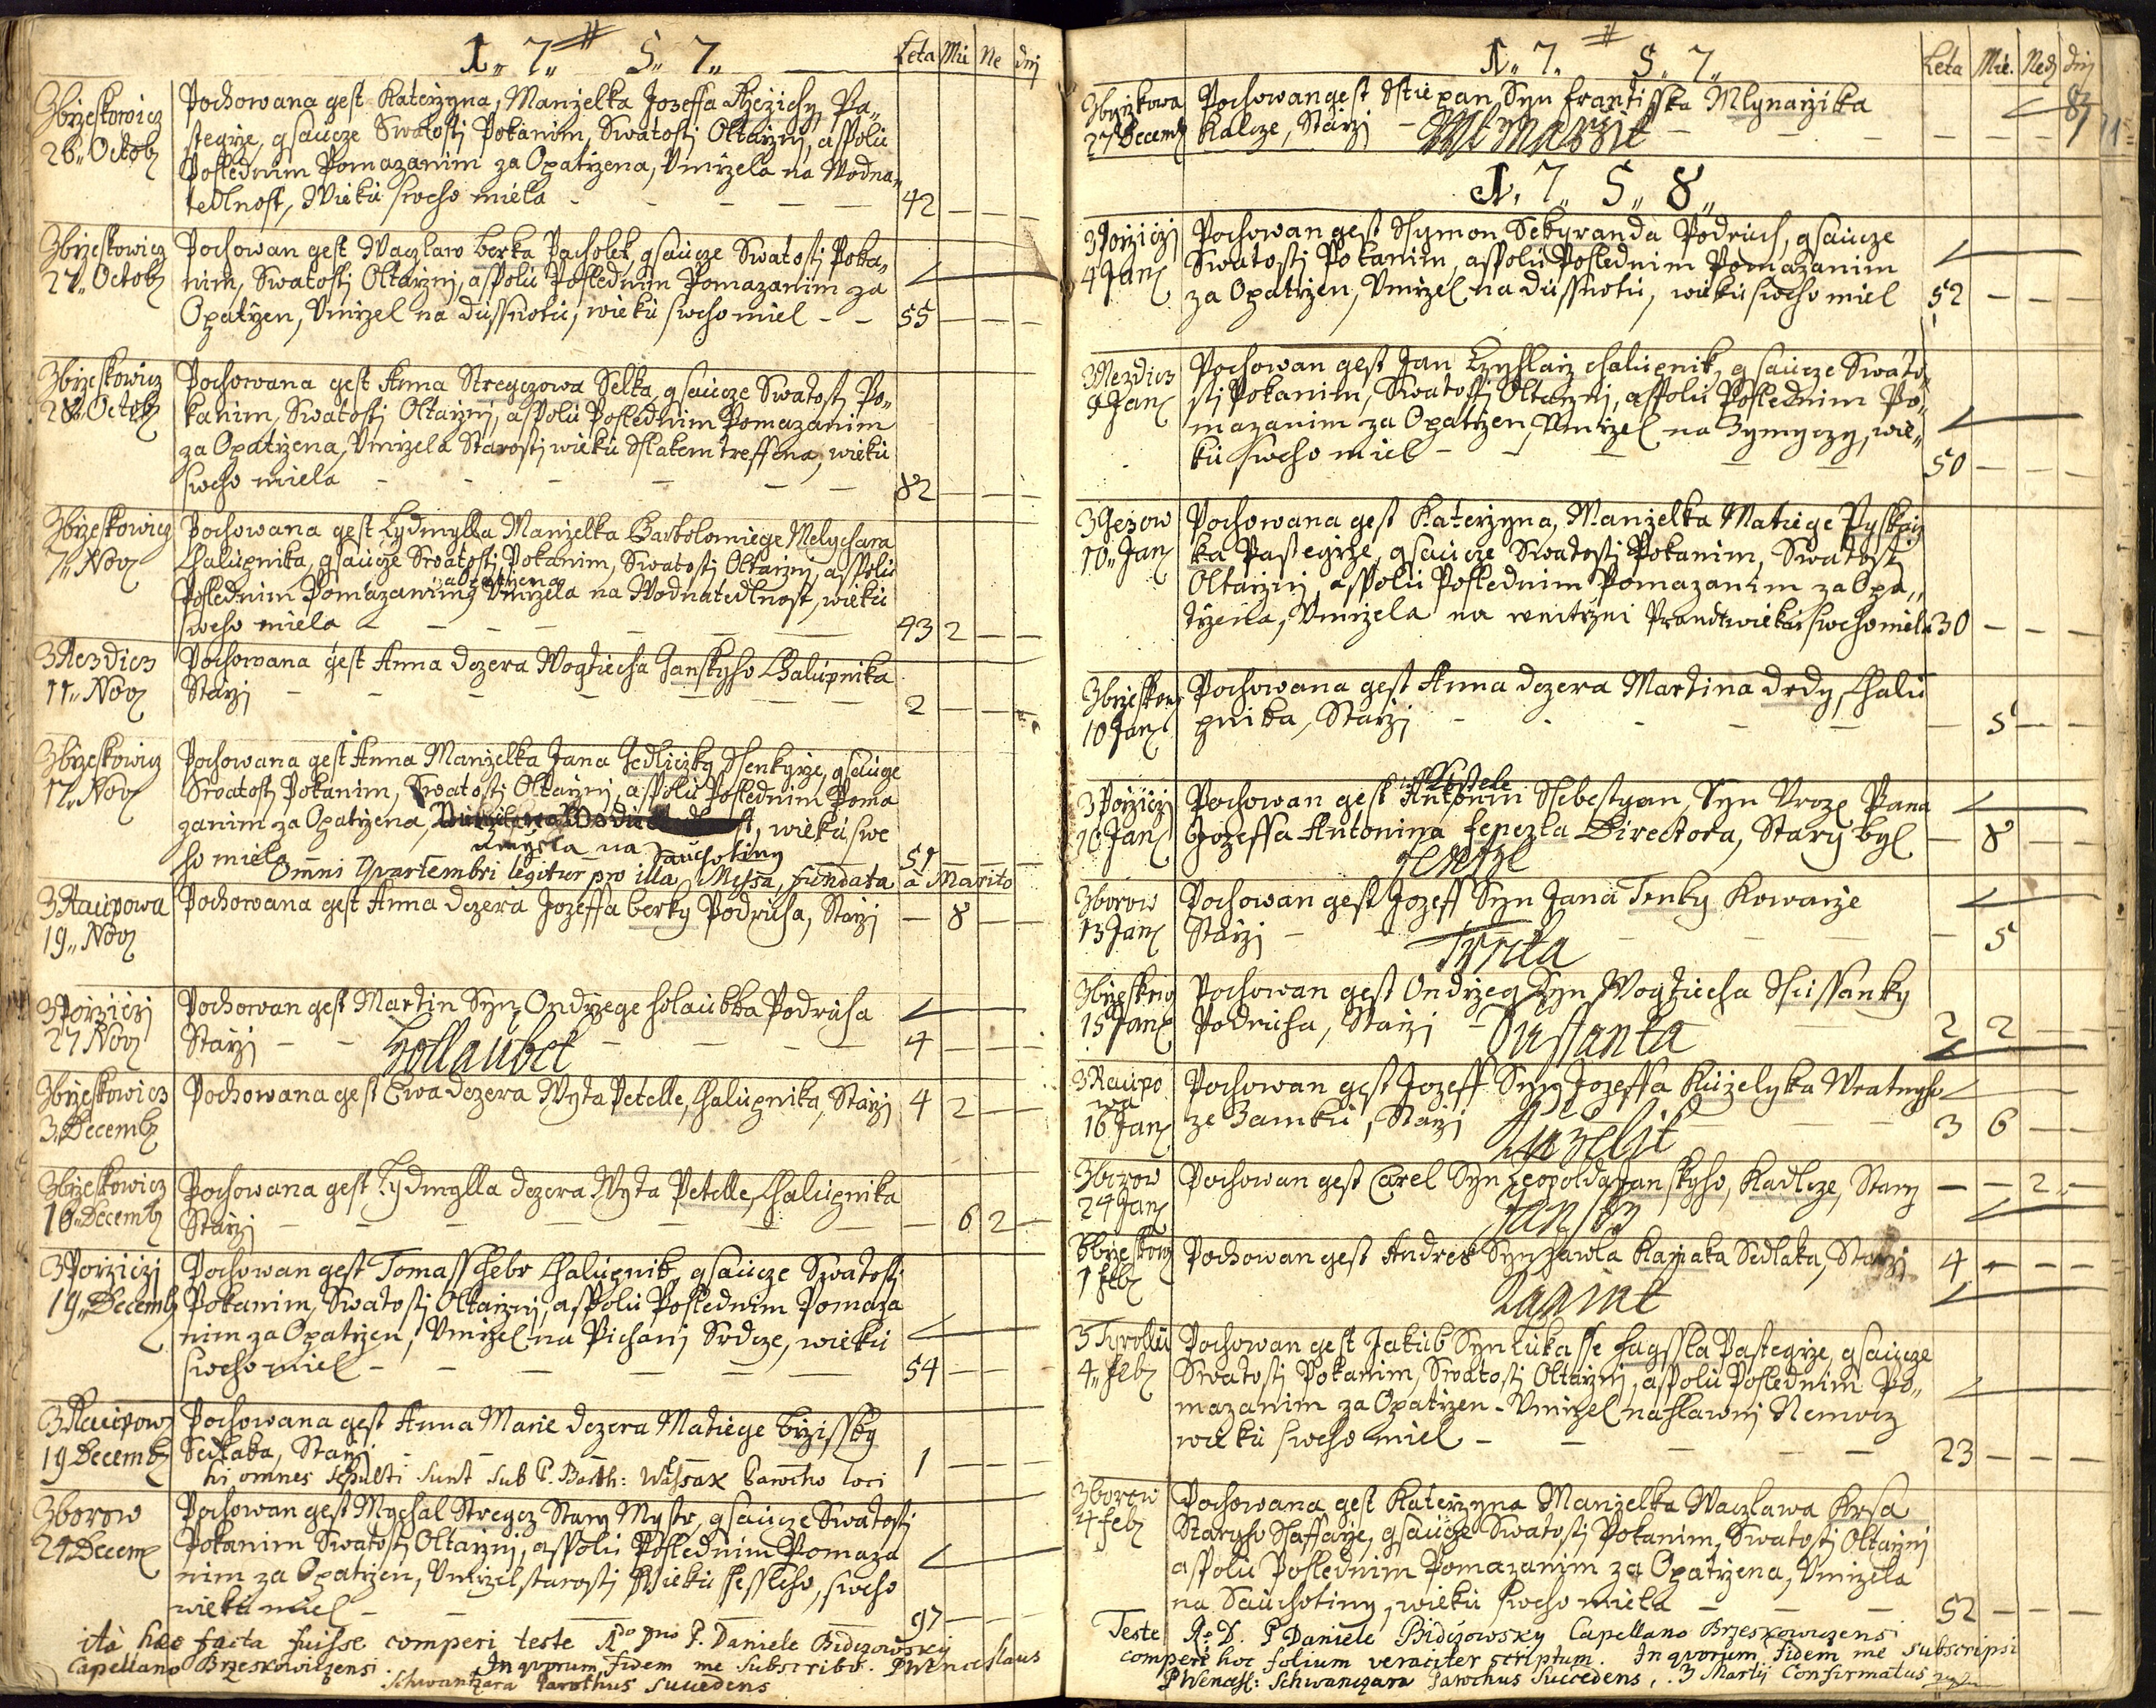 1„ 7„ 5„ 7„
Leta Mie Ne dnj
Zbrzeskowicz
26„ Octob
Pochowana gest Katerzyna, Manżelka Jozeffa Rzezichy Pa„
stegrze, gsaucze Swatostj Pokanim, Swatostj Oltarznj, a spolu
Poslednim Pomazanim za Opatrzena, Vmrzela na Wodna„
tedlnost, Wieku sweho miela 42
Zbrzeskowicz
27„ Octob
Pochowan gest Waczlaw berka Pacholek, gsaucze Swatostj Poka„
nim, Swatostj Oltarznj, a spolu Poslednim Pomazanim za
Opatrzen, Vmrzel na dussnotu, wieku sweho miel 55
Zbrzeskowicz
28„ Octob
Pochowana gest Anna Stregczowa Selka, gsaucze Swatostj Po„
kanim, Swatostj Oltarznj, a spolu Poslednim Pomazanim
za Opatrzena, Vmrzela Starostj wieku Sslakem treffena, wieku
sweho miela 82
Zbrzeskowicz
7„ Nov
Pochowana gest Lydmylla Manżelka Bartolomiege Melychara
Chalupnika, gsaucze Swatostj Pokanim, Swatostj Oltarznj, a spolu
zaopatrzena
Poslednim Pomazanim, Vmrzela na Wodnatedlnost, wieku
sweho miela 43 2
Z Aezdicz
11„ Nov
Pochowana gest Anna dczera Wogtiecha Janskyho Chalupnika
Starzj 2
Zbrzeskowicz
17„ Nov
Pochowana gest Anna Manżelka Jana Jedliczky Ssenkyrze, gsaucze
Swatostj Pokanim, Swatostj Oltarznj, a spolu Poslednim Poma
zanim za Opatrzena, wieku swe
umrzela na Sauchotiny
ho miela 51
Omni Quartembri legitur pro illa Missa, fundata a Marito
Z Raupowa
19„ Nov
Pochowana gest Anna dczera Jozeffa berky Podruha, Starzj 8
Z Porziczj
27 Nov
Pochowan gest Martin Syn Ondrzege holaubka Podruha
Starzj 4
Hollaubek
Zbrzeskowicz
3„ Decemb
Pochowana gest Ewa dczera Wyta Petelle, Chalupnika, Starzj 4 2
Zbrzeskowicz
16„ Decemb
Pochowana gest Lydmylla dczera Wyta Petelle, Chalupnika
Starzj 6 2
Z Porziczj
19„ Decemb
Pochowan gest Tomass Chebr Chalupnik, gsaucze Swatostj
Pokanim, Swatostj Oltarznj, a spolu Poslednim Pomaza
nim za Opatrzen, Vmrzel na Pichanj Srdcze, wieku
sweho miel 54
Z Raupow
19 Decemb
Pochowana gest Anna Marie dczera Matiege brzissky
Sedlaka, Starzj 1
hi omnes sepulti sunt sub P. Barth: Walsax Parocho loci
Zborow
24 Decem
Pochowan gest Mychal Stregcz Stary Mystr, gsaucze Swatostj
Pokanim Swatostj Oltarznj, a spolu Poslednim Pomaza
nim za Opatrzen, Vmrzel starostj Wieku sessleho, sweho
wieku miel 97
ita haec facta fuisse comperi teste Rdo Dno P. Daniele Bidizowsky
Capellano Brzeskowiczensi. In quorum fidem me Subscribo. P Wenceslaus
Schwantzara Parochus Succedens
1„ 7„ 5„ 7„
Leta Mie. Ned dnj
83
71
Zbrzizkowa
27 Decemb
Pochowan gest Sstiepan Syn frantisska Mlynarzika
Kalcze, Starzj
Mlinarzik
1„ 7„ 5„ 8„
Z Porziczj
4 Jan
Pochowan gest Ssymon Sekyranda Podruh, gsaucze
Swatostj Pokanim, a spolu Poslednim Pomazanim
za Opatrzen, Vmrzel na dussnotu, wieku sweho miel 52
Z Aezdicz
9 Jan
Pochowan gest Jan chalupnik, gsaucze Swato
stj Pokanim, Swatostj Oltarznj, a spolu Poslednim Po„
mazanim za Opatrzen, Vmrzel na Zymyczy, wie„
ku sweho miel 50
Z Gezow
10„ Jan
Pochowana gest Katerzyna, Manżelka Matiege Pyskacz
ka Pastegrze, gsaucze Swatostj Pokanim, Swatostj
Oltarznj, a spolu Poslednim Pomazanim za Opa„
trzena, Vmrzela na wnitrznj Prandt wieku sweho miela 30
Zbrzeskow
10 Jan
Pochowana gest Anna dczera Martina drdy, Chalu
pnika, Starzj 5
Z Porziczj
10 Jan
Pochowan gest Antonin Ssebestyan, Syn Vroz Pana
Jozeffa Antonina fenczla Directora, Stary byl 8
Zborow
13 Jan
Pochowan gest Jozeff Syn Jana Trnky Kowarze
Starzj 5
Trnka
Zbrzeskow
15 Jan
Pochowan gest Ondrzeg Syn Wogtiecha Ssussanky
Podruha, Starzj 2 2
Sussanka
Z Raupo
wa
16 Jan
Pochowan gest Jozeff Syn Jozeffa Kużelyka Wratnyho
ze Zamku, Starzj 3 6
Kuzelik
Zborow
24 Jan
Pochowan gest Carel Syn Leopolda Janskyho, Kadlcze, Stary 2
Jansky
Zbrzeskow
1 feb
Pochowan gest Andres Syn Pawla Kaniaka Sedlaka, Starzj 4
Z Tyrollu
4„ feb
Pochowan gest Jakub Syn Lukasse fagssla Pastegrze, gsaucze
Swatostj Pokanim, Swatostj Oltarznj, a spolu Poslednim Po„
mazanim za Opatrzen. Vmrzel na hlawnj Nemocz
wieku sweho miel 23
Zborow
4 feb
Pochowana gest Katerzyna Manżelka Waczlawa Krsa
Staryho Ssaffarze, gsaucze Swatostj Pokanim, Swatostj Oltarznj
a spolu Poslednim Pomazanim za Opatrzena, Vmrzela
na Sauchotiny, wieku sweho miela 52
Teste R. D. P Daniele Bidizowsky Capellano Brzeskowiczensi
comperi hoc folium veraciter scriptum. In quorum fidem me subscripsi
P Wencesl: Schwanczara Parochus Succedens, 3 Martij Confirmatus